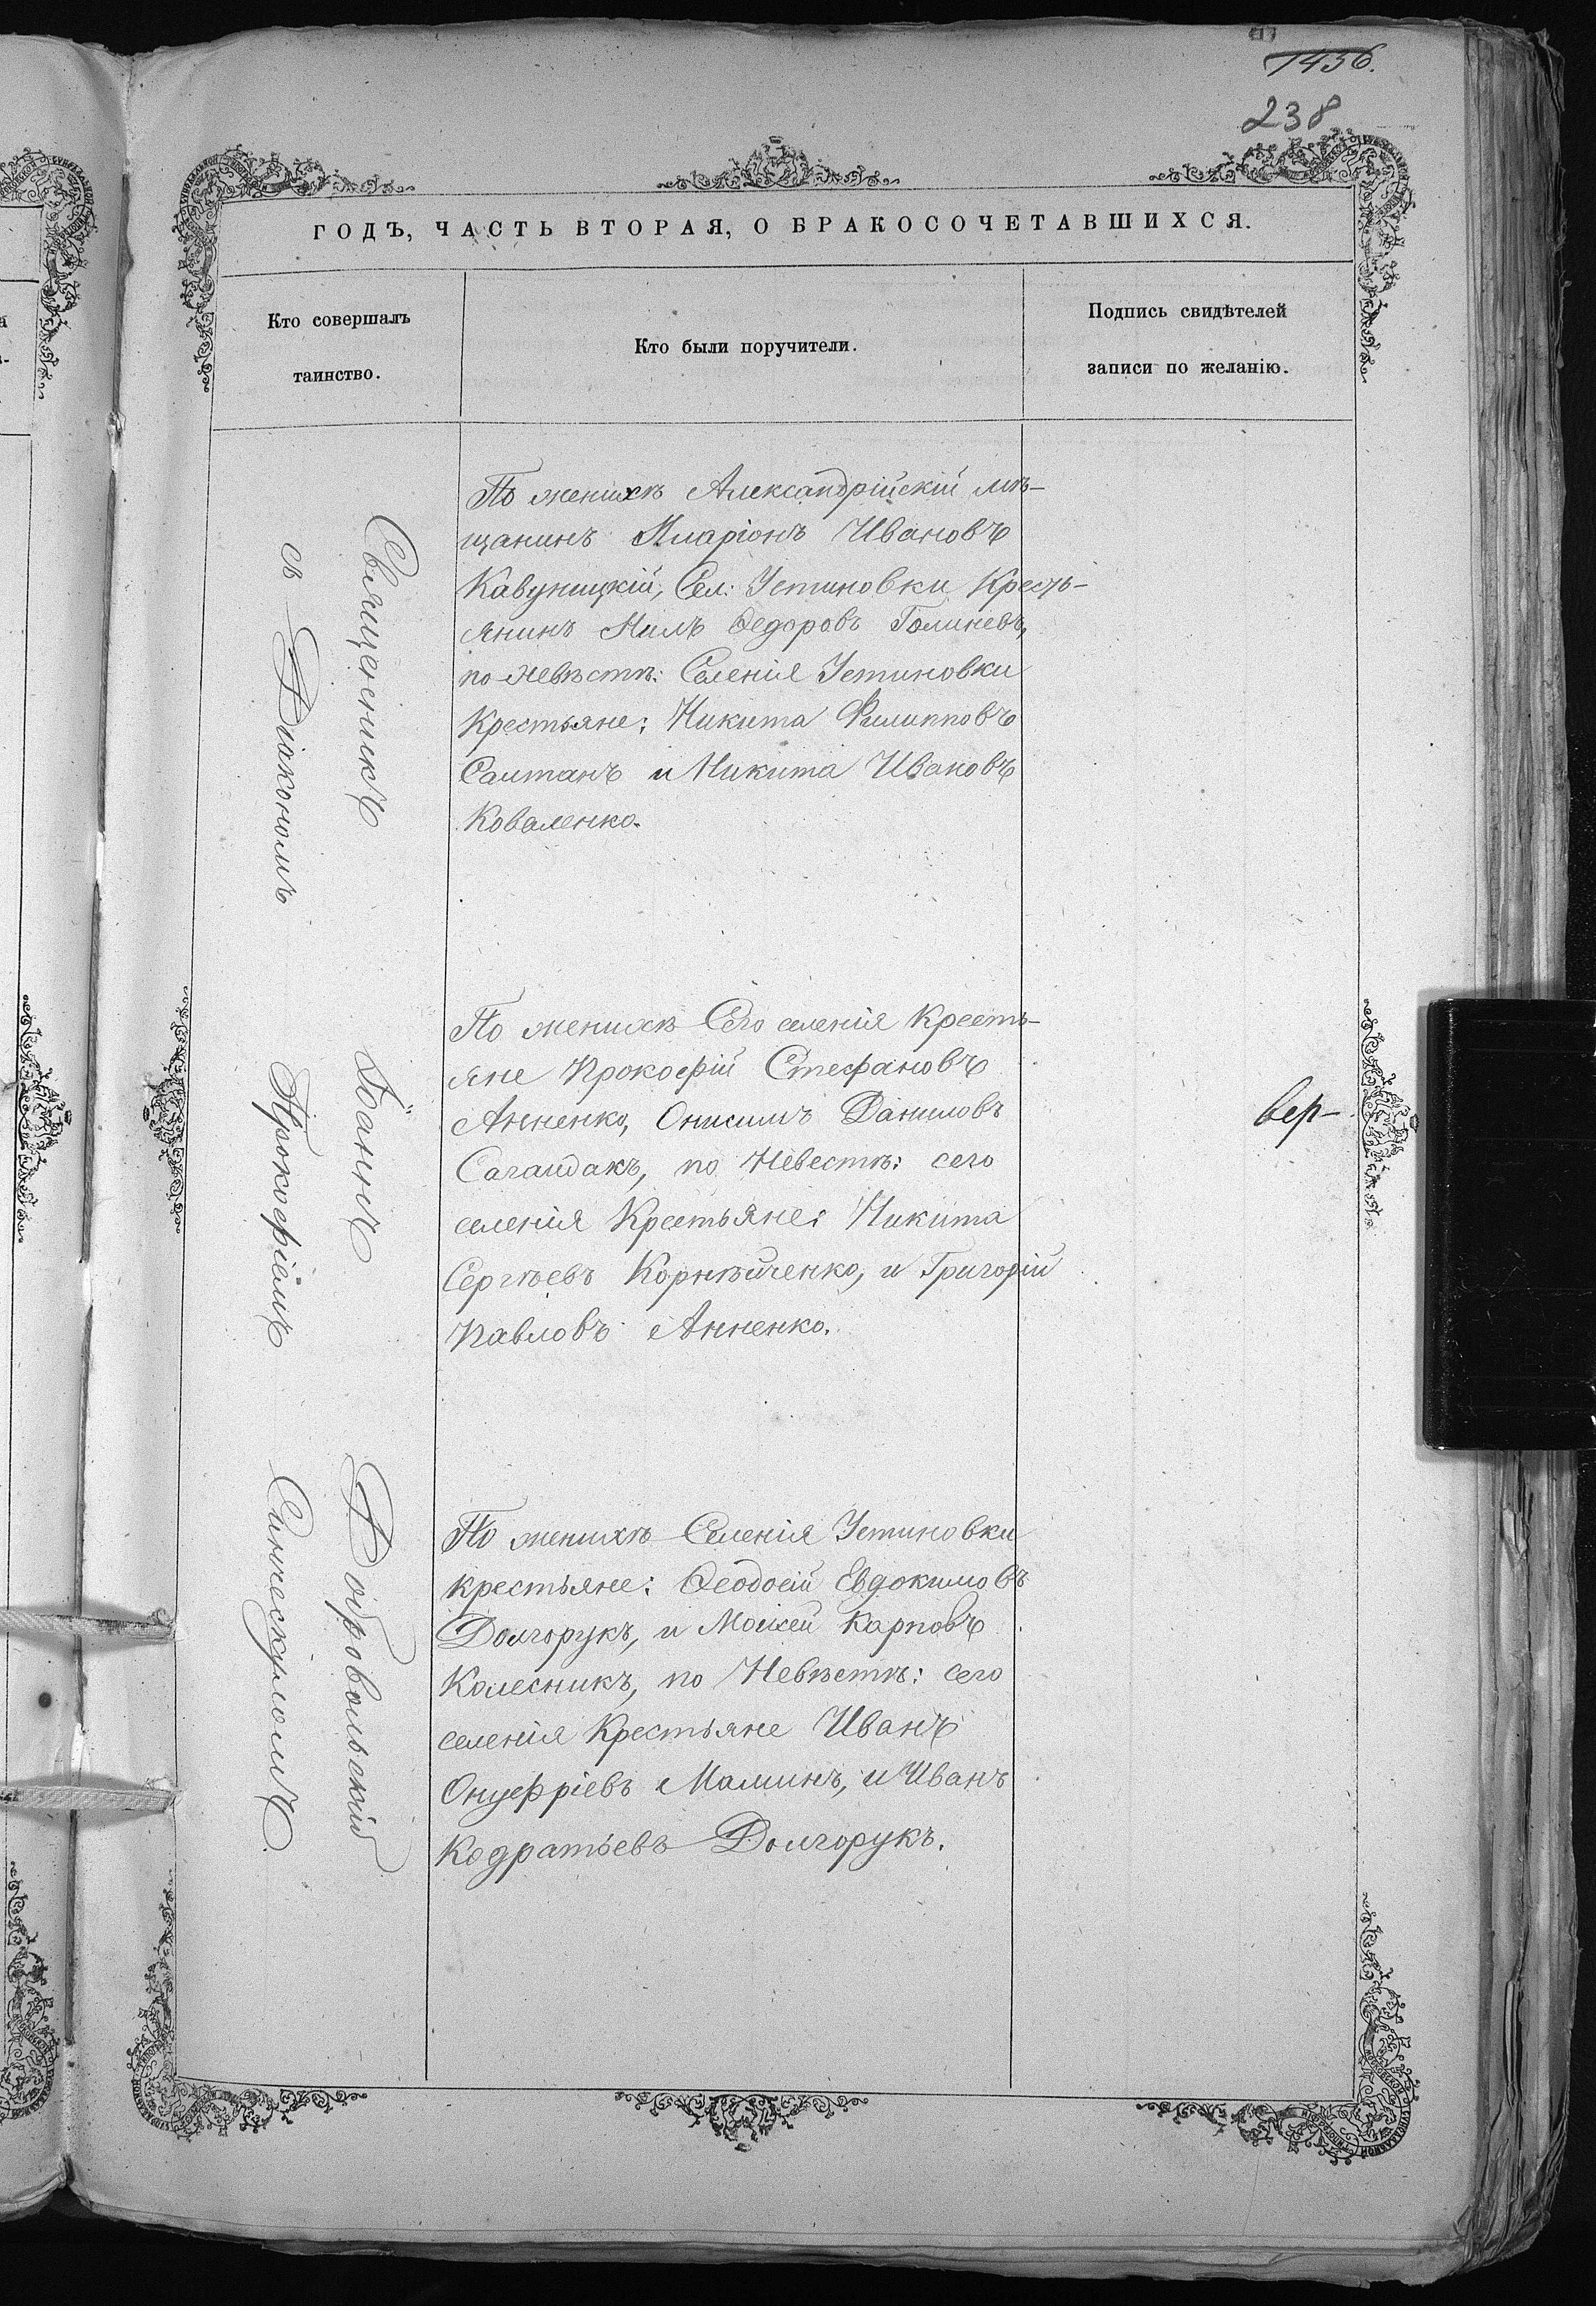 1456.
238
ГОДЪ, ЧАСТЬ ВТОРАЯ, О БРАКОСОЧЕТАВШИХСЯ.
Кто совершалъ
таинство.
Кто были поручители.
Подпись свидѣтелей
записи по желанію.
Священникъ Іоаннъ Добровольскій
съ Діакономъ Прокофіемъ
По женихѣ Александрійскій мѣ-
щанинъ Иларіонъ Ивановъ
Кавуницкій, Сел: Устиновки Кресть-
янинъ Нилъ Ѳедоровъ Голиневъ,
по невѣстѣ: Селенія Устиновки
Крестьяне: Никита Филипповъ
Салтанъ и Никита Ивановъ
Коваленко.
По женихѣ Сего селенія Кресть-
яне Прокофій Стефановъ
Анненко, Онисимъ Даниловъ
Сагайдакъ, по Невестѣ: сего
селенія Крестьяне: Никита
Сергѣевъ Корнѣйченко, и Григорій
Павловъ Анненко.
вер-
По женихѣ Селенія Устиновки
крестьяне: Ѳеодосій Евдокимовъ
Долгорукъ, и Моисей Карповъ
Колесникъ, по Невѣстѣ: сего
селенія Крестьяне Иванъ
Онуфріевъ Малинъ, и Иванъ
Кодратьевъ Долгорукъ.